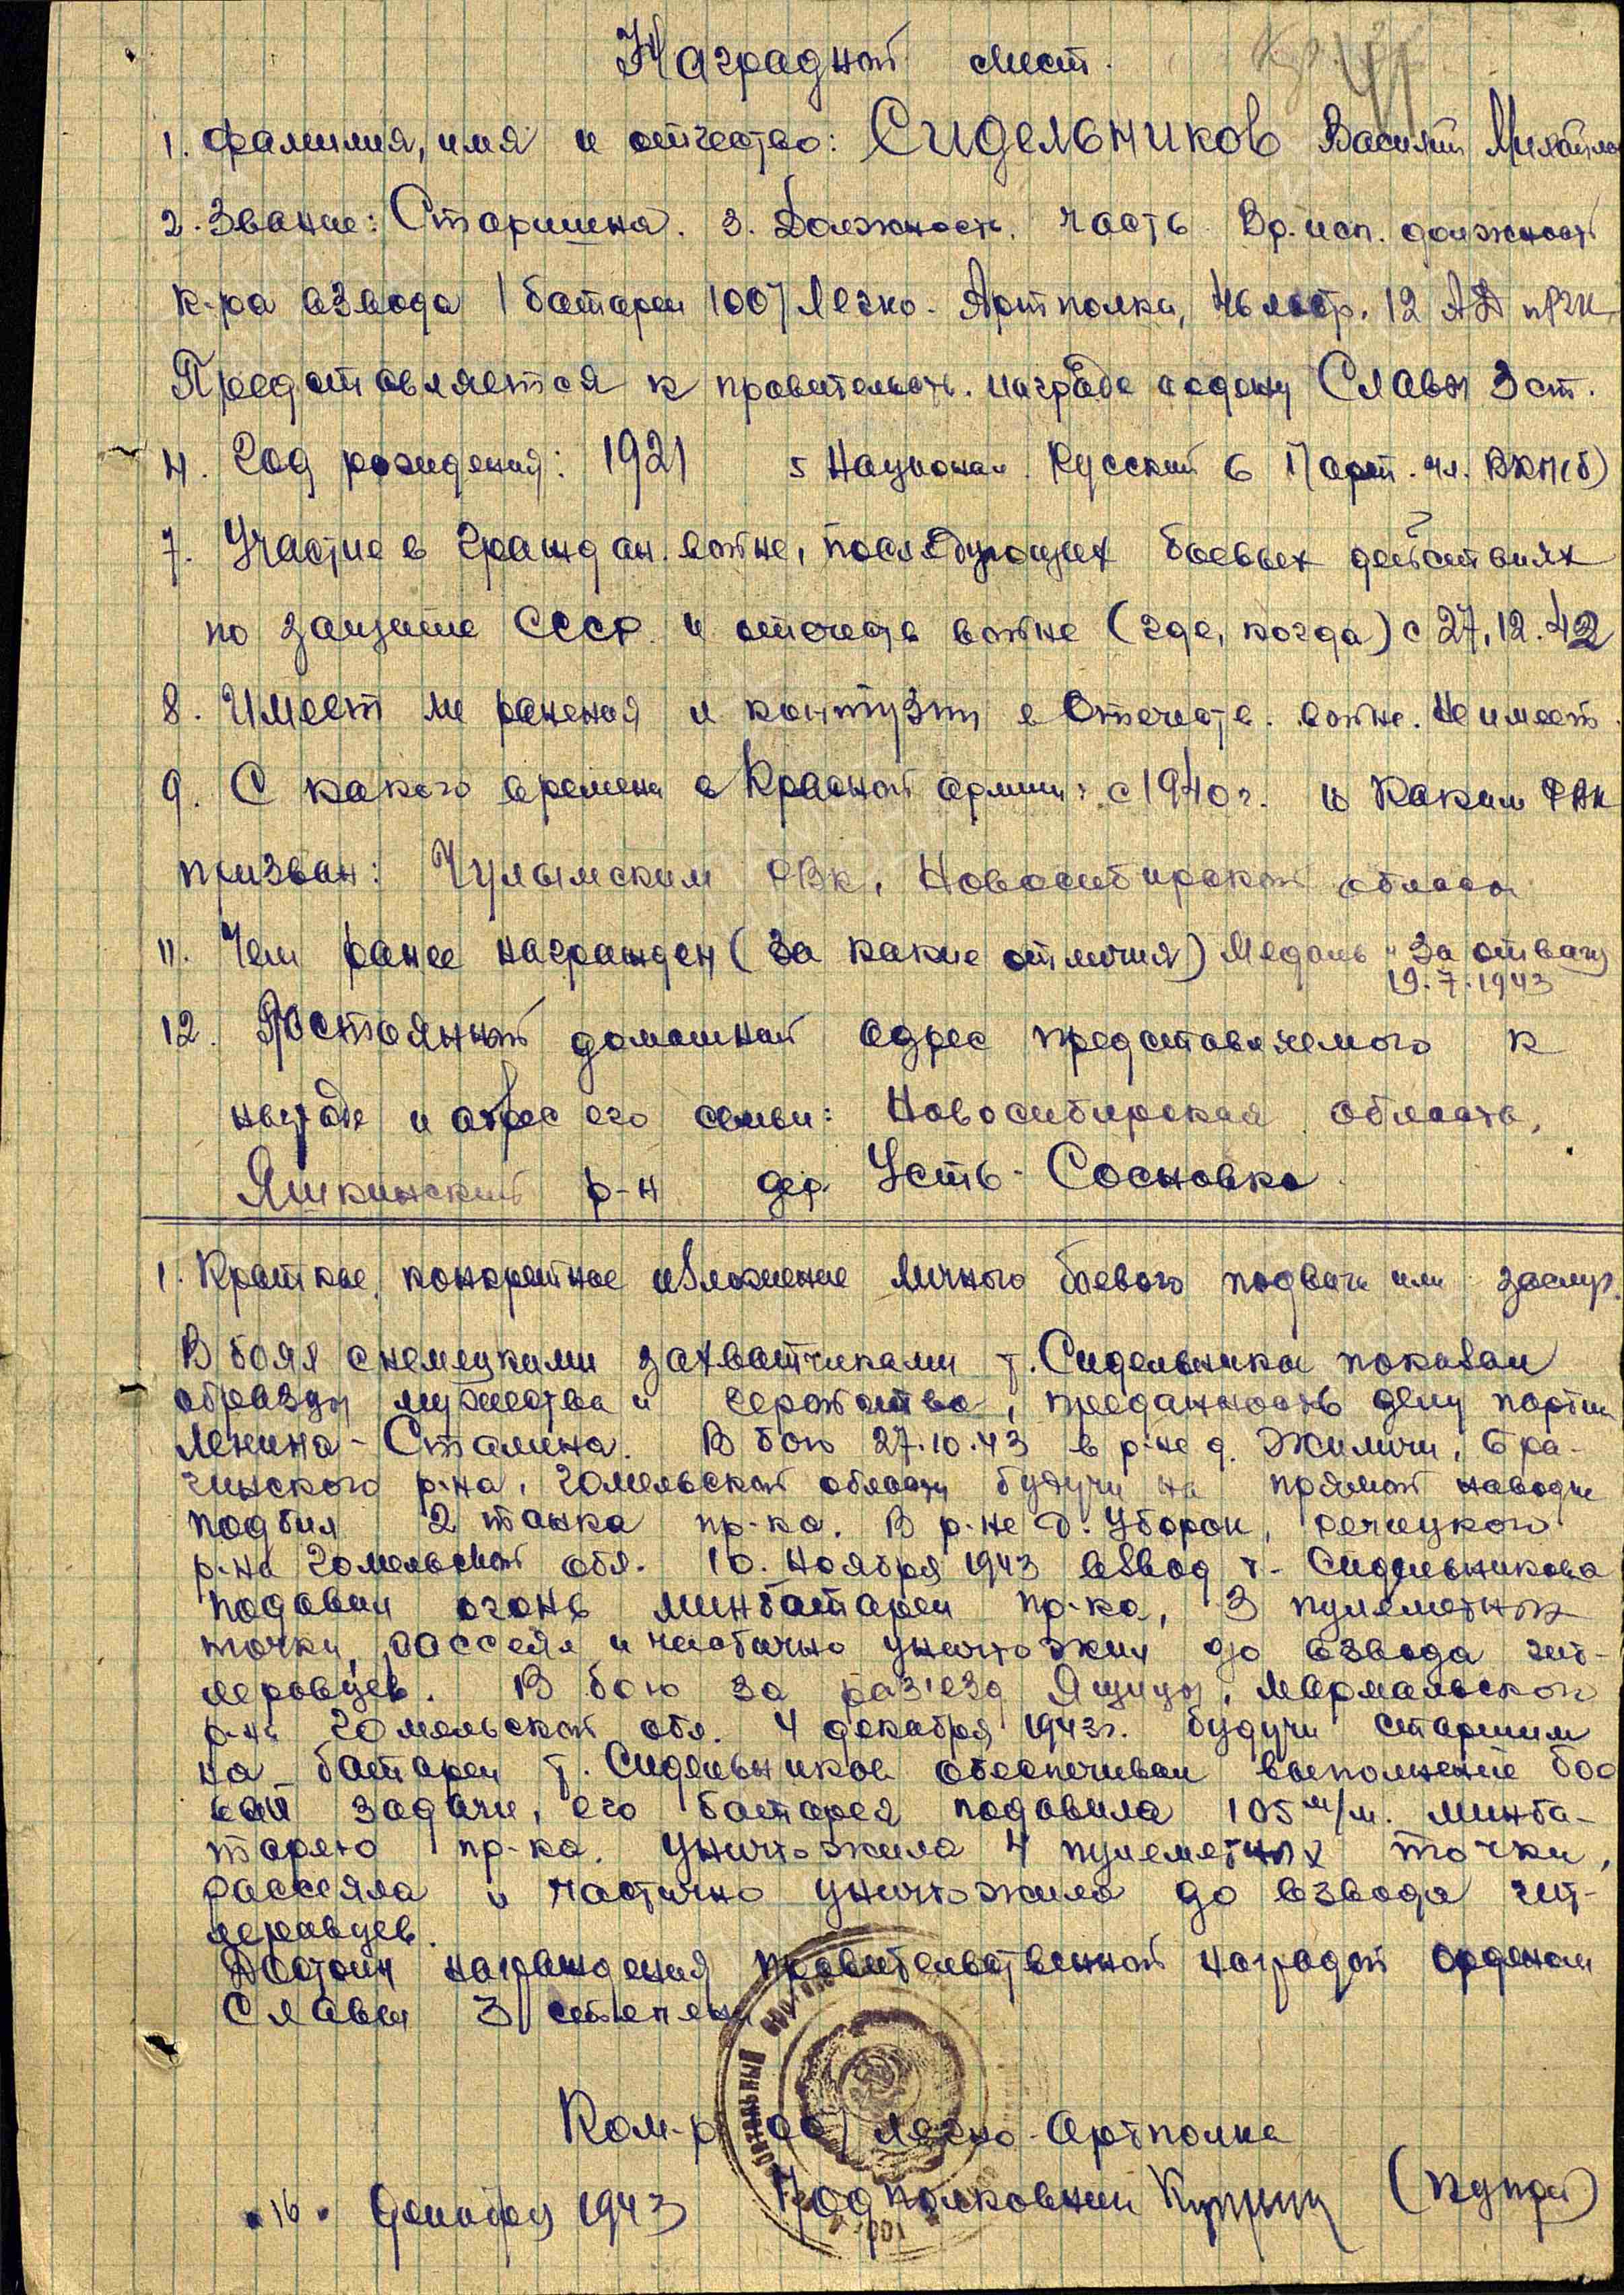 Наградной лист.
1. Фамилия, имя и отчество: Сидельников Василий Михайлов
2. Звание: Старшина. 3. Должность, часть Вр. исп. должност
к-ра взвода 1 батареи 1007 Легко-Артполка, 46 лабр. 12 АД пРГК
Представляется к правительств. награде ордену Славы 3 ст.
4. Год рождения: 1921 5 Национал. Русский 6 Парт. чл. ВКП(б)
7. Участие в граждан. войне, последующих боевых действиях
по защите СССР и отечеств войне (где, когда) с 27.12.42
8. Имеет ли ранения и контузии в Отечеств. войне. Не имеет.
9. С какого времени в Красной армии: с 1940 г. 10 Каким РВК
призван: Чулымским РВК, Новосибирской области
11. Чем ранее награжден (за какие отличия) Медаль "За отвагу
19.7.1943
12. Постоянный домашний адрес представляемого к
награде и адрес его семьи: Новосибирская область,
Яшкинский р-н дер. Усть-Сосновка
1. Краткое, конкретное изложение личного боевого подвига или заслуг.
В боях с немецкими захватчиками т. Сидельников показал
образцы мужества и геройства, преданность делу партии
Ленина-Сталина. В бою 27.10.43 в р-не д. Жиличи, Бра-
гинского р-на, Гомельской области будучи на прямой наводке
подбил 2 танка пр-ка. В р-не д. Уборок, Речицкого
р-на Гомельской обл. 10. ноября 1943 взвод т. Сидельникова
подавил огонь минбатареи пр-ка, 3 пулеметных
точки, рассеял и частично уничтожил до взвода гит-
леровцев. В бою за разъезд Ящицы,
р-на Гомельской обл. 4 декабря 1943г. будучи старшим
на батареи т. Сидельников обеспечивал выполнение бое
вой задачи, его батарея подавила 105 м/м. минба-
тарею пр-ка. уничтожила 4 пулеметных точки,
рассеяла и частично уничтожила до взвода гит-
леровцев.
Достоин награждения правительственной наградой орденом
Славы 3 степени
Ком-р 1007 легко-Артполка
Подполковник (Купри)
"16" декабря 1943